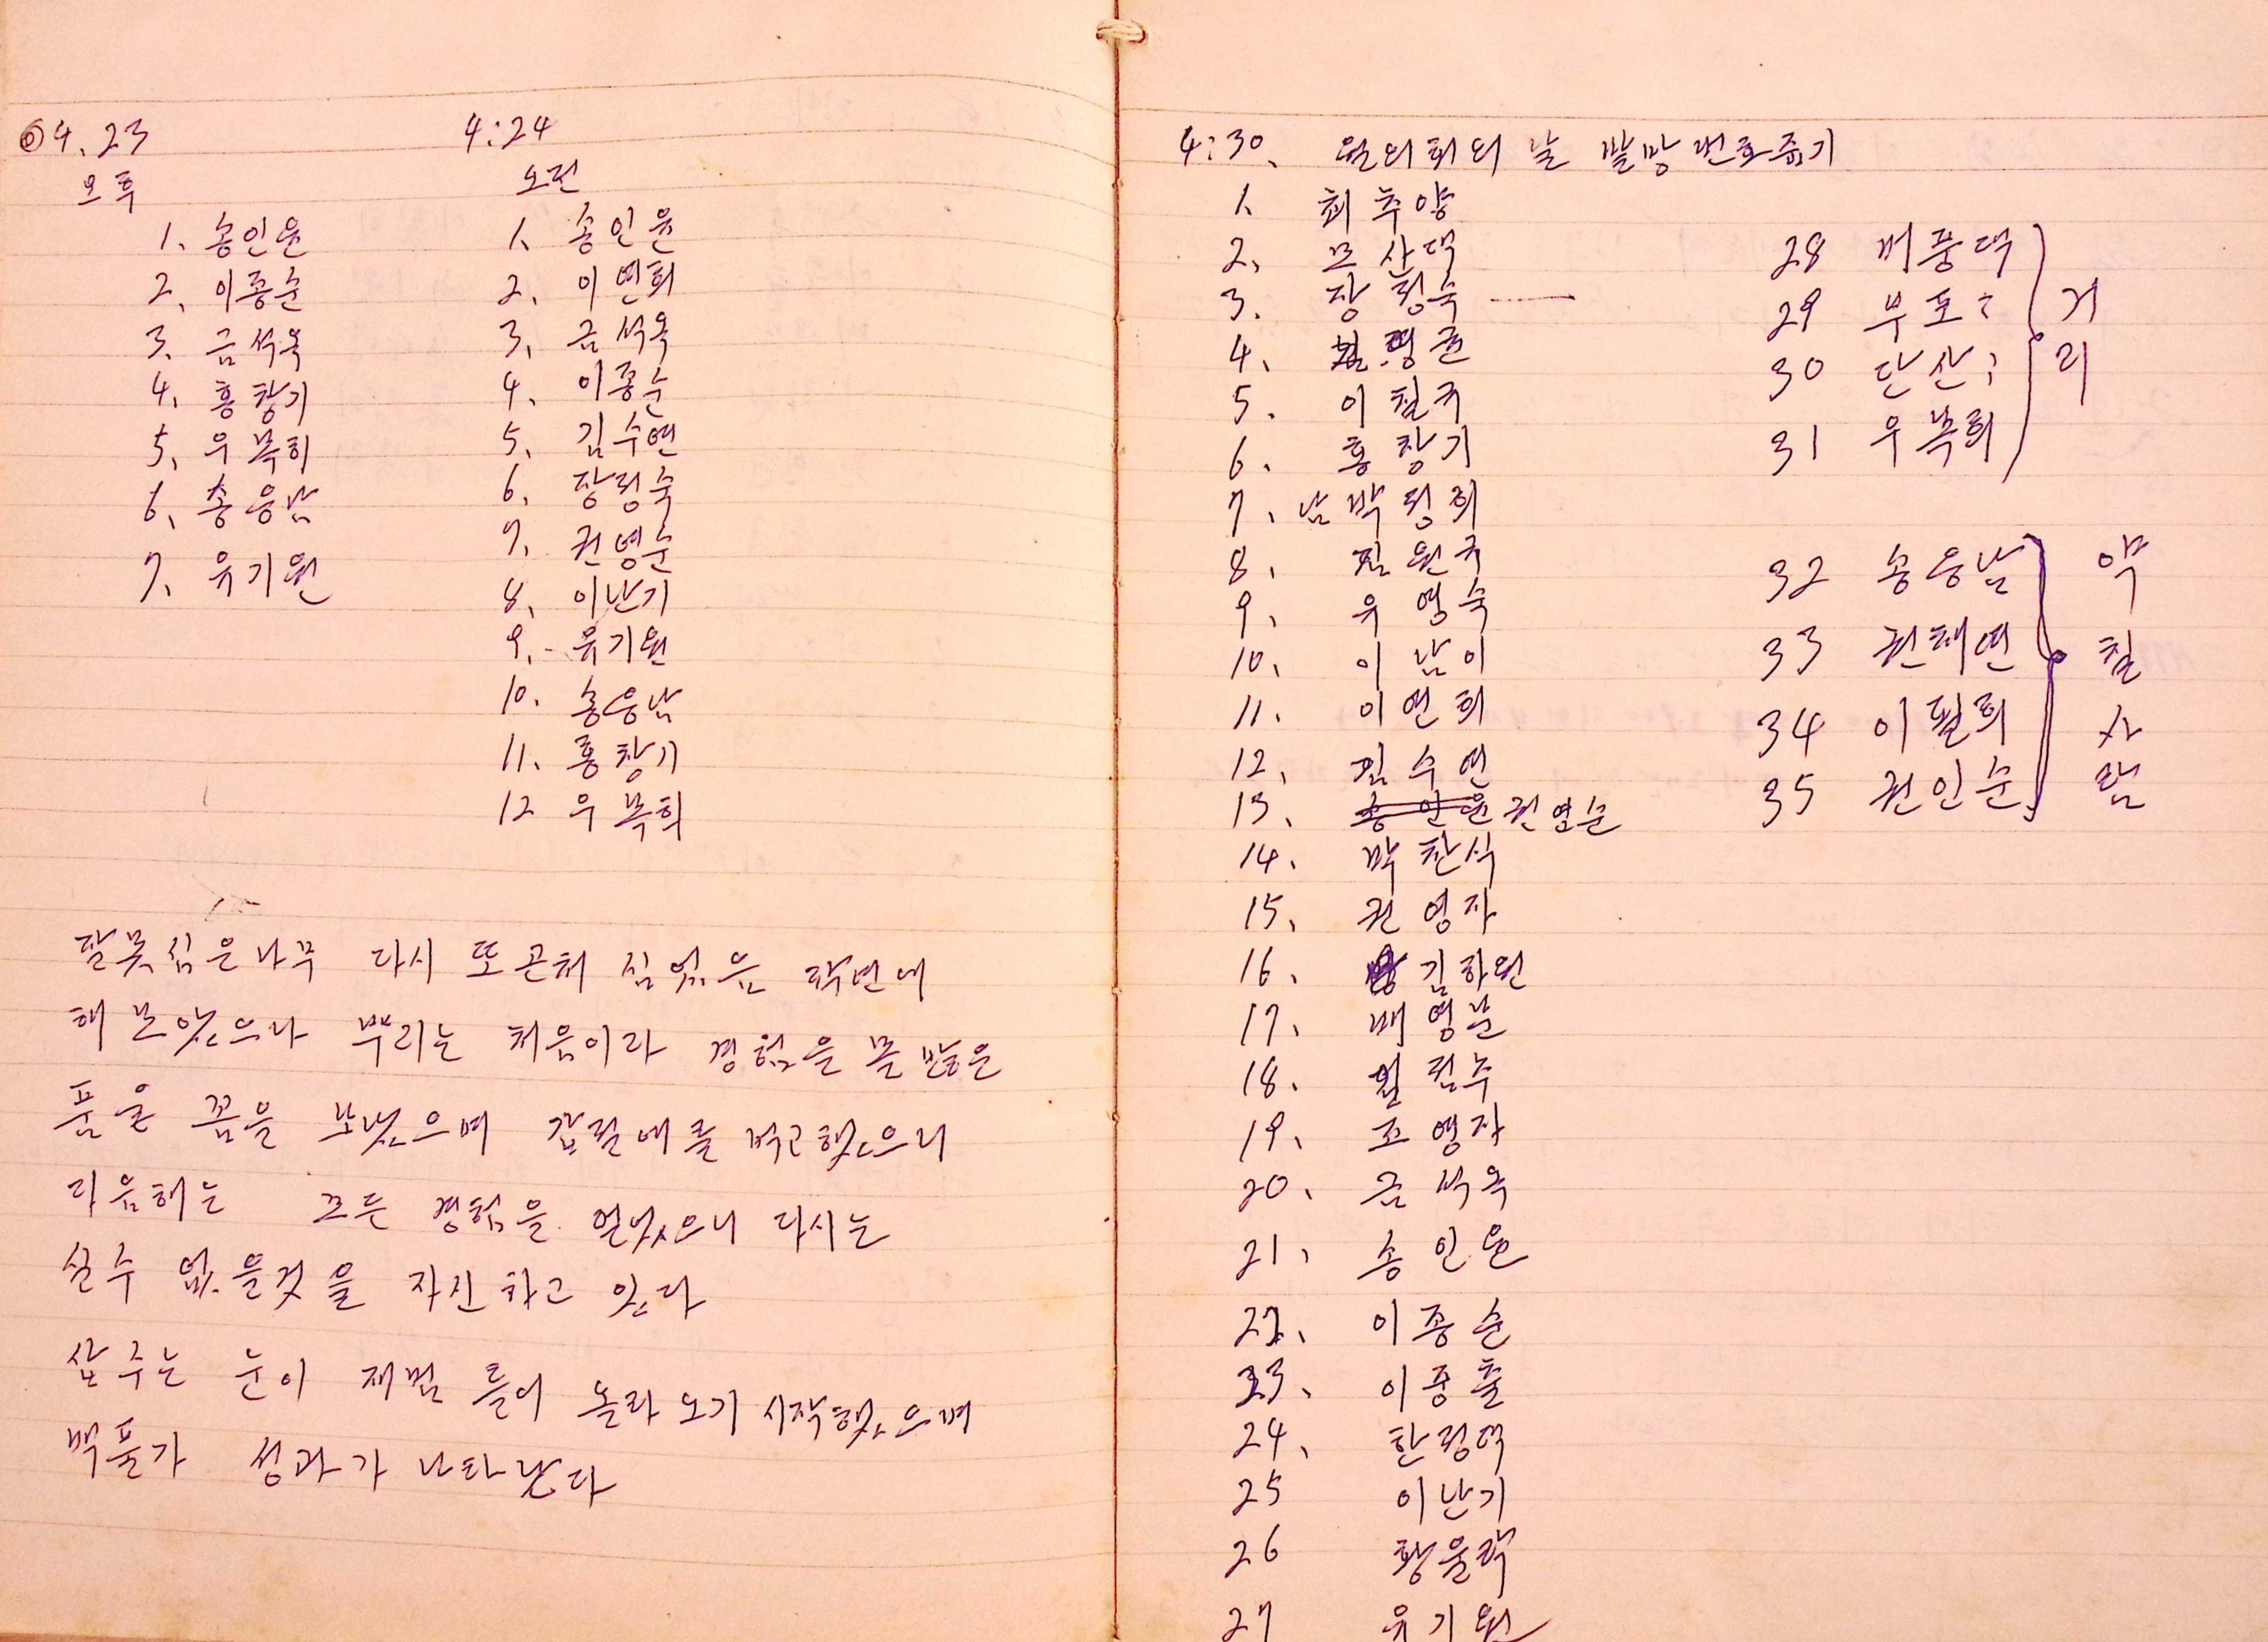 ◎4.23
오후
1. 송인윤
2. 이종순
3. 금석옥
4. 홍창기
5. 우복희
6. 송응남
7. 유기원
4:24
오전
1. 송인윤
2. 이연희
3. 금석옥
4. 이종순
5. 김수연
6. 장정숙
7. 권영순
8. 이난기
9. 유기원
10. 송응남
11. 홍창기
12 우복희
잘못심은나무 다시 또곤처 심었음 작년에
해보았으나 뿌리는 처음이라 경험을 못
품을 꼼을 보냈으며 먹고했으니
다음해는 모든 경험을 얻었으니 다시는
실수 없을것을 자신하고 있다
삽주는 눈이 제법 틀어 올라오기 시작했으며
백품가 성과가 나타났다
4:30. 월의회의 날 발망번호쥬기
1. 최추양
2. 모사댁
3. 장정숙
4. 영균
5. 이칠국
6. 홍창기
7. 남박정희
8. 김원국
9. 우영숙
10. 이남이
11. 이연희
12. 김수연
13. 송인윤 권영순
14. 박찬식
15. 권영자
16. 김하원
17. 배영분
18. 김점수
19. 조영자
20. 금석옥
21. 송인윤
22. 이종순
23. 이종출
24. 한정댁
25 이난기
26 황울락
27 유기원
28 버풍댁
29 부포〃
30 단산〃
31 우복희
거
리
32 송응남
33 권태연
34 이필희
35 권인순
약
칠
사
람